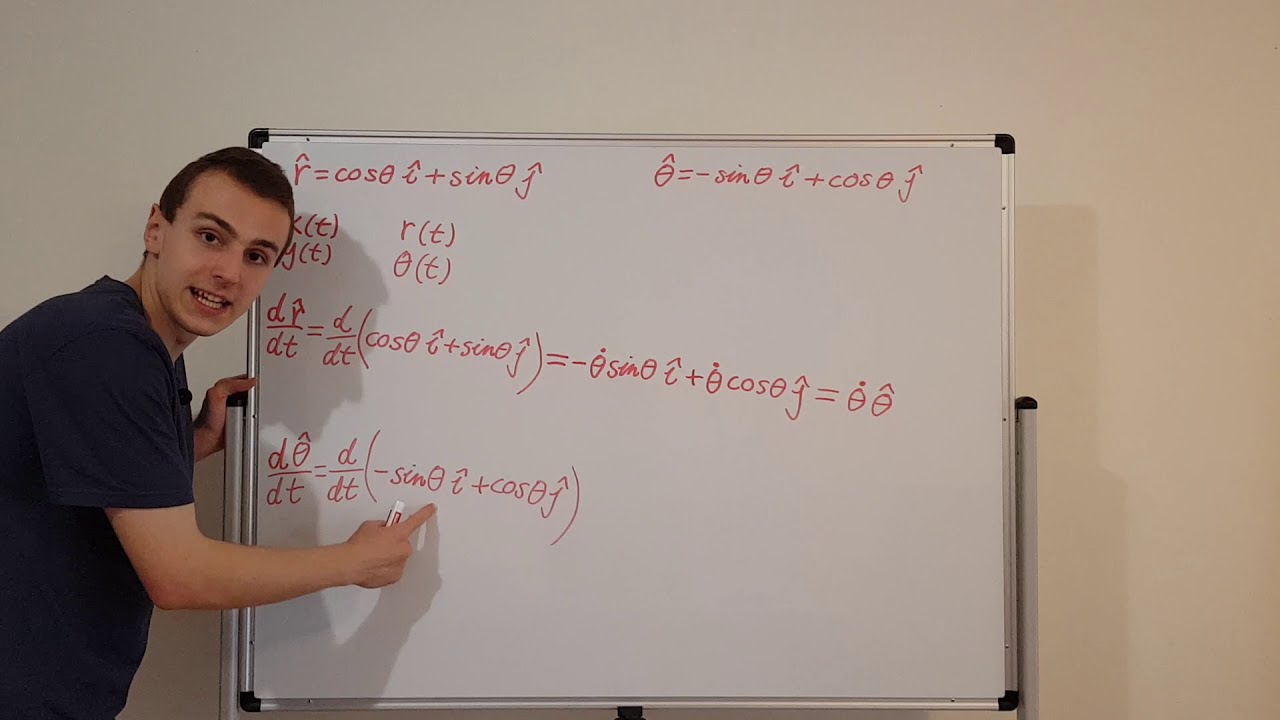 r̂ = cosθ î + sinθ ĵ
θ̂ = -sinθ î + cosθ ĵ
x(t)
y(t)
r(t)
θ(t)
dr̂/dt = d/dt (cosθ î + sinθ ĵ) = -θ̇ sinθ î + θ̇ cosθ ĵ = θ̇ θ̂
dθ̂/dt = d/dt (-sinθ î + cosθ ĵ)